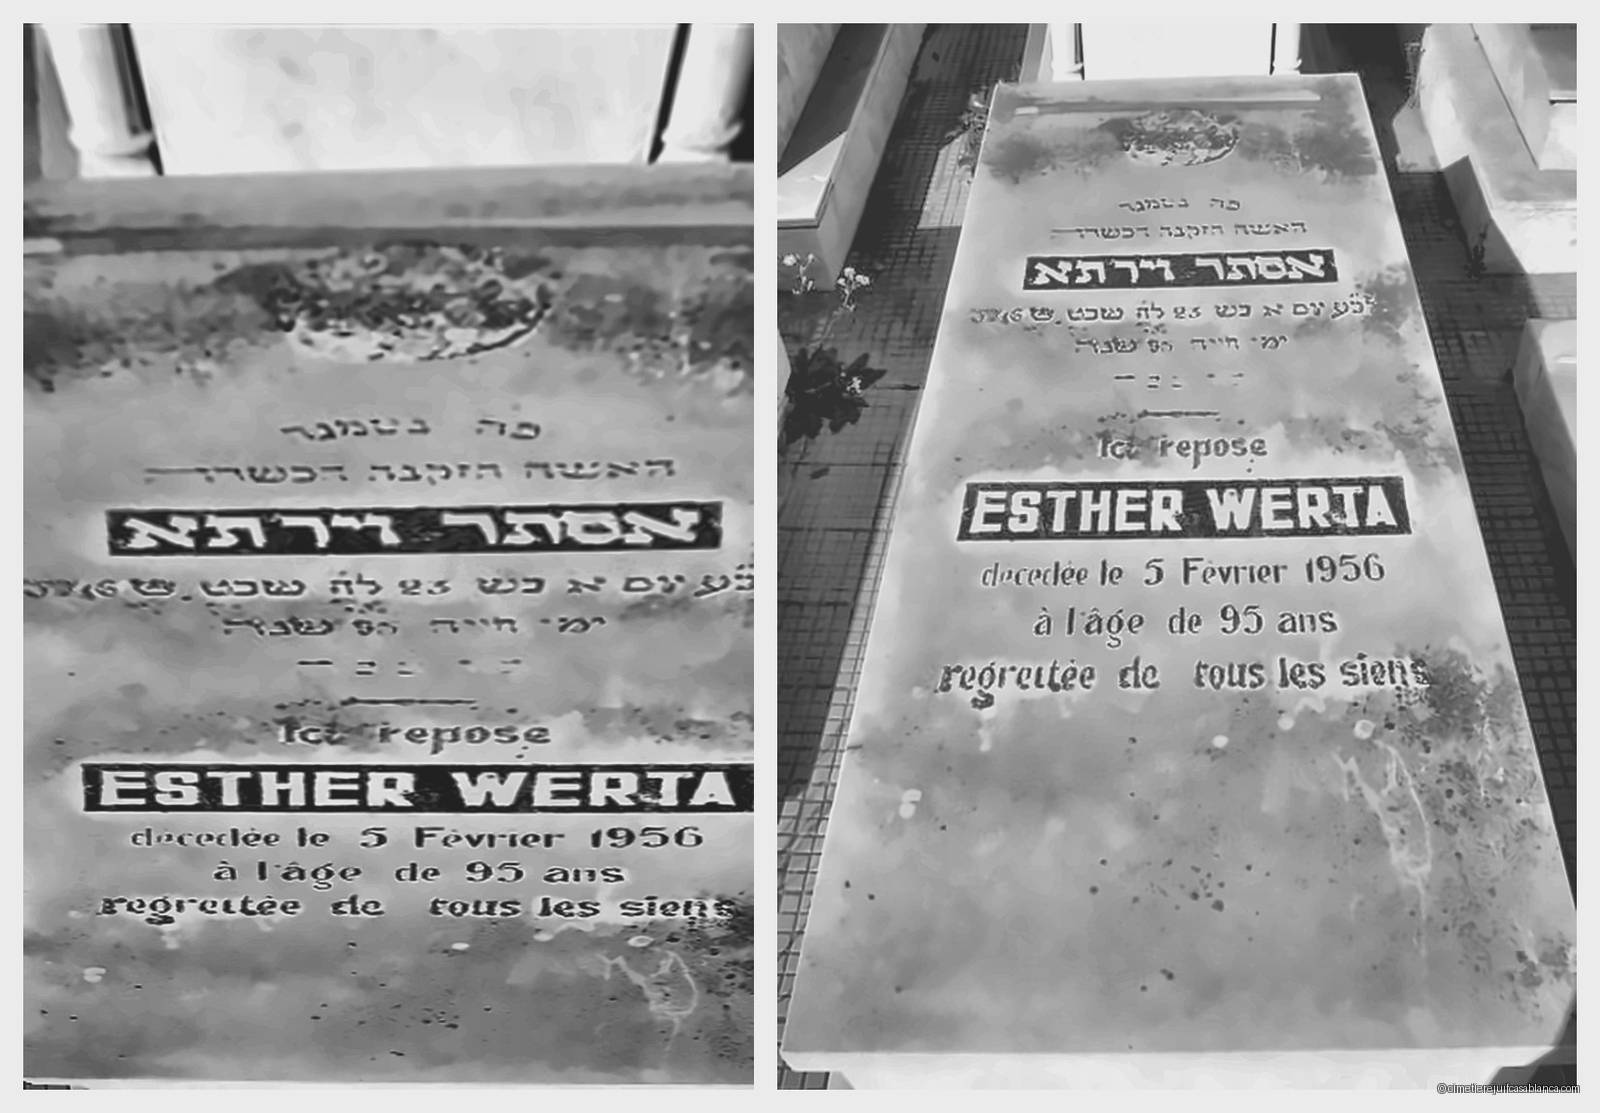 פה נטמנה
האשה הזקנה הכשרה
אסתר וירתא
נ״ע יום א כש 23 לח שבט ש 5716
ימי חייה 95 שנה
Ici repose
ESTHER WERTA
décedée le 5 Février 1956
à l'âge de 95 ans
regrettée de tous les siens
פה נטמנה
האשה הזקנה הכשרה
אסתר וירתא
נ״ע יום א כש 23 לח שבט ש 5716
ימי חייה 95 שנה
Ici repose
ESTHER WERTA
décedée le 5 Février 1956
à l'âge de 95 ans
regrettée de tous les siens
©cimetierejuifcasablanca.com